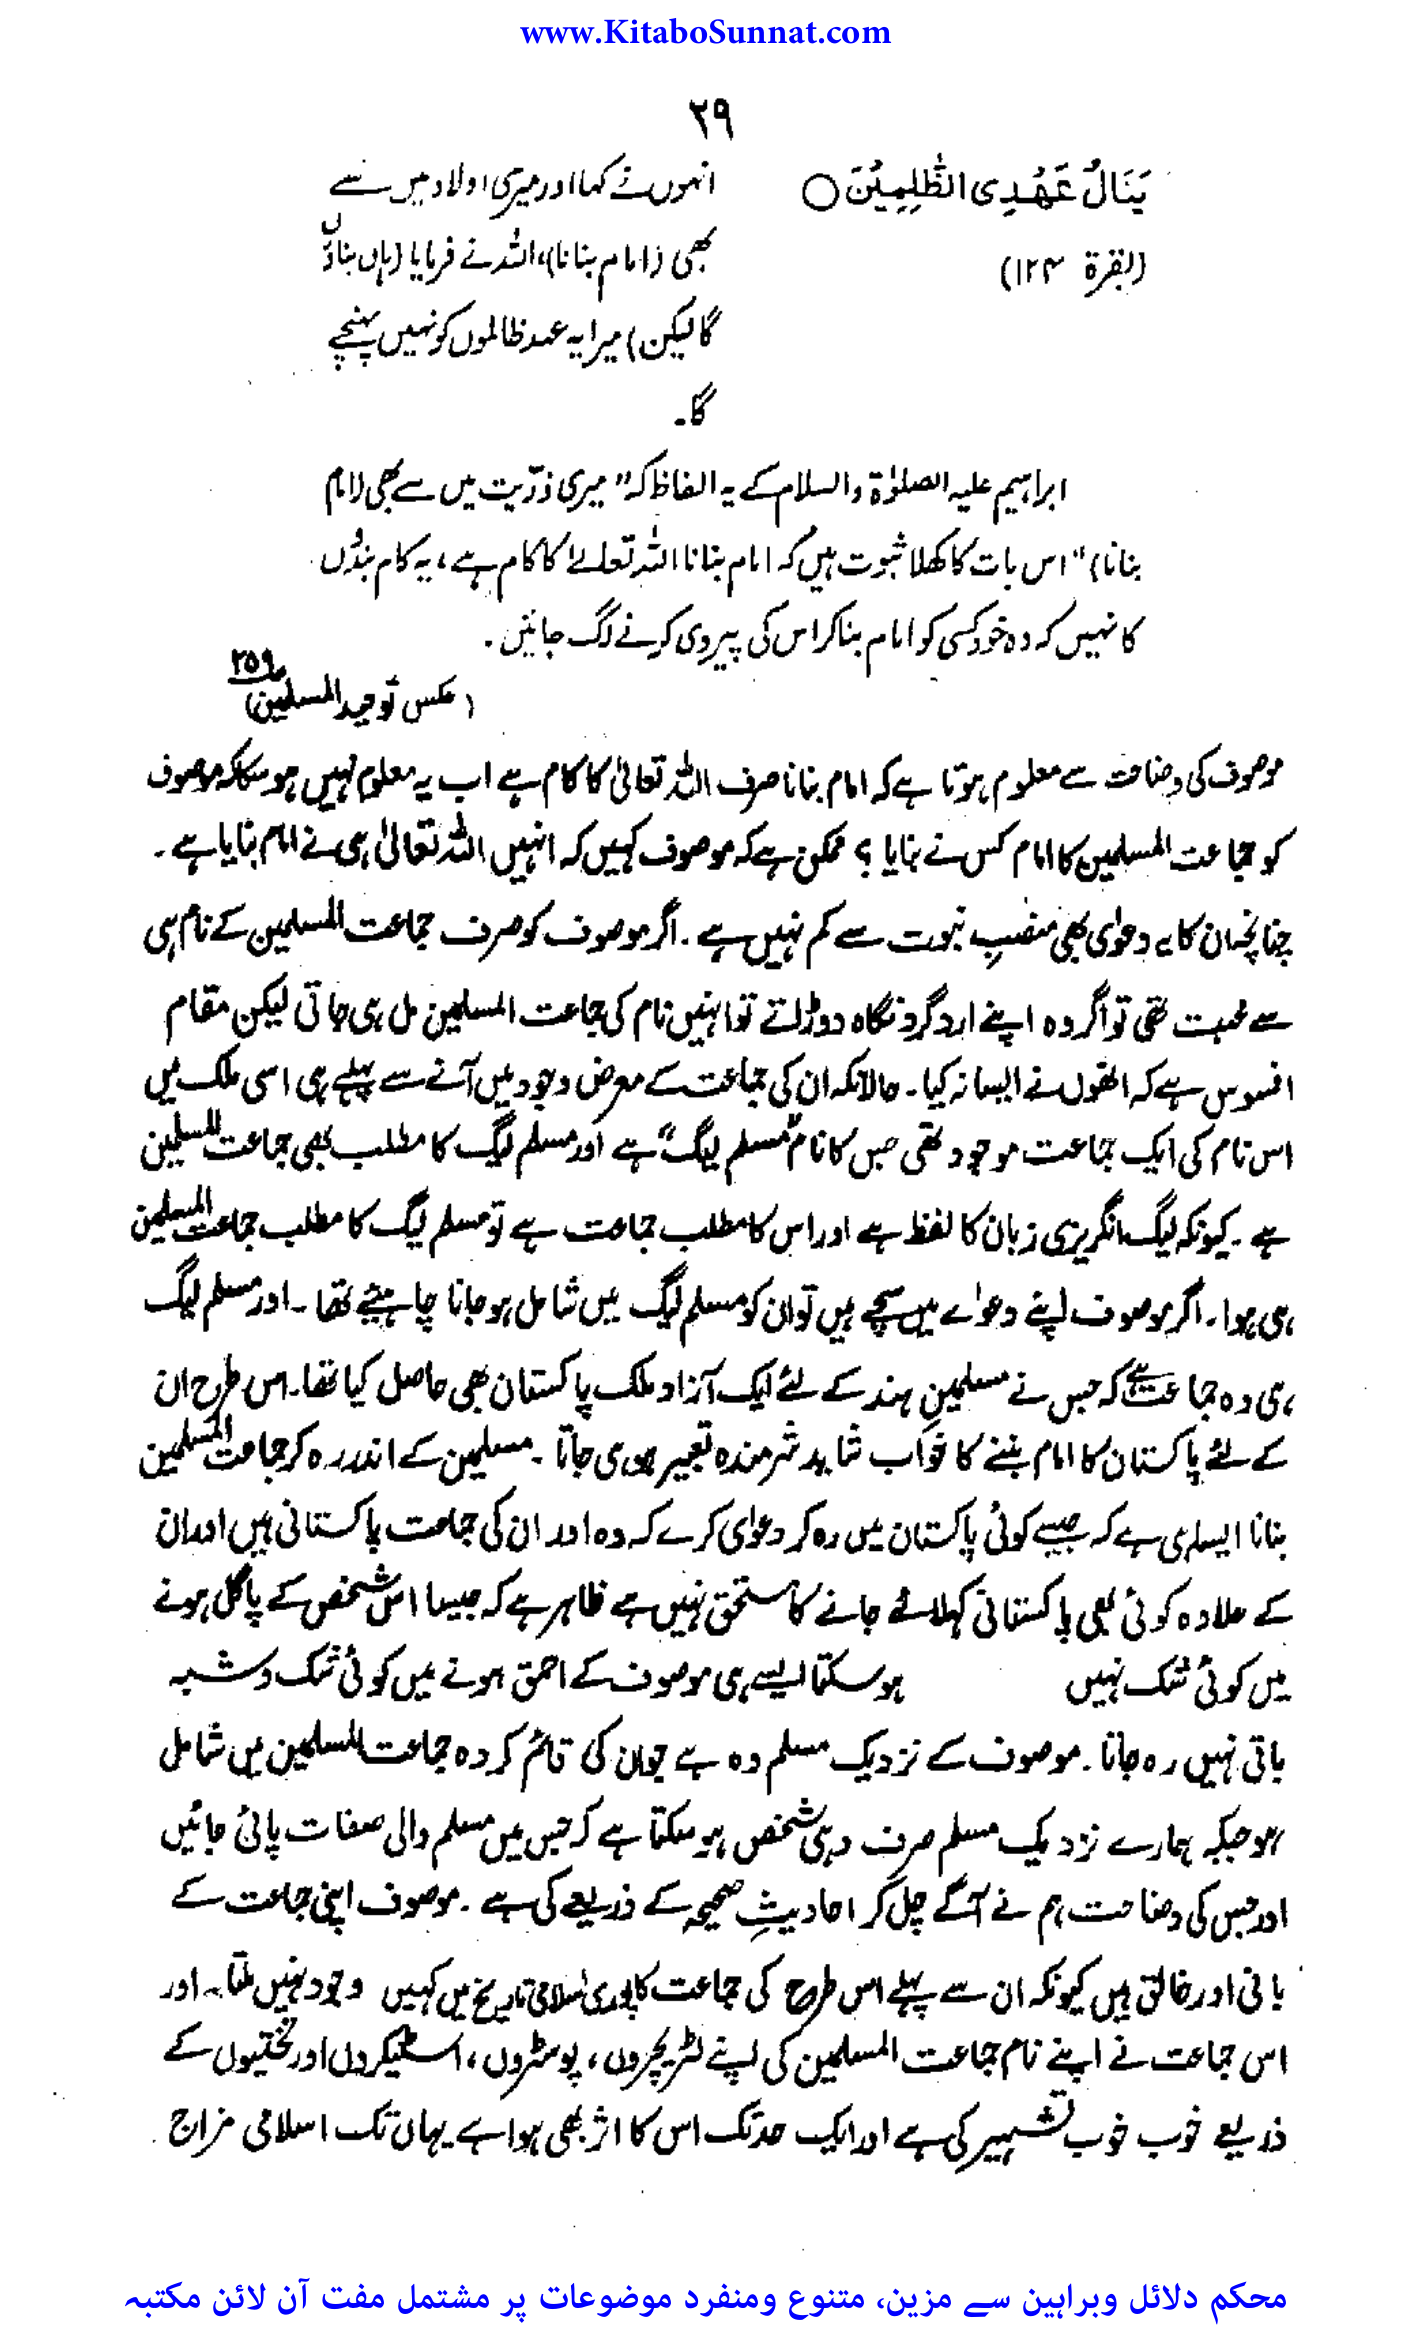 www.KitaboSunnat.com
۲۹
یَنَالُ عَھْدِی الظّٰلِمِیْنَ ○
(البقرۃ ۱۲۴)
انہوں نے کہا اور میری اولاد میں سے
بھی (امام بنانا)، اللہ نے فرمایا (ہاں بناؤں
گا لیکن) میرا یہ عہد ظالموں کو نہیں پہنچے
گا۔
ابراہیم علیہ الصلوٰۃ والسلام کے یہ الفاظ کہ "میری ذرّیت میں سے بھی (امام
بنانا)" اس بات کا کھلا ثبوت ہیں کہ امام بنانا اللہ تعالےٰ کا کام ہے، یہ کام بندوں
کا نہیں کہ وہ خود کسی کو امام بنا کر اس کی پیروی کرنے لگ جائیں۔
(عکس توحید المسلمین) ص۲۵۹
موصوف کی وضاحت سے معلوم ہوتا ہے کہ امام بنانا صرف اللہ تعالیٰ کا کام ہے اب یہ معلوم نہیں ہو سکا کہ موصوف
کو جماعت المسلمین کا امام کس نے بنایا ؟ ممکن ہے کہ موصوف کہیں کہ انہیں اللہ تعالیٰ ہی نے امام بنایا ہے۔
چنانچہ ان کا یہ دعوٰی بھی منصبِ نبوت سے کم نہیں ہے۔ اگر موصوف کو صرف جماعت المسلمین کے نام ہی
سے محبت تھی تو اگر وہ اپنے ارد گرد نگاہ دوڑاتے تو انہیں نام کی جماعت المسلمین مل ہی جاتی لیکن مقام
افسوس ہے کہ انھوں نے ایسا نہ کیا۔ حالانکہ ان کی جماعت کے معرض وجود میں آنے سے پہلے ہی اسی ملک میں
اس نام کی ایک جماعت موجود تھی جس کا نام "مسلم لیگ" ہے اور مسلم لیگ کا مطلب بھی جماعت المسلمین
ہے۔ کیونکہ لیگ انگریزی زبان کا لفظ ہے اور اس کا مطلب جماعت ہے تو مسلم لیگ کا مطلب جماعت المسلمین
ہی ہوا۔ اگر موصوف اپنے دعوٰے میں سچے ہیں تو ان کو مسلم لیگ میں شامل ہو جانا چاہیئے تھا۔ اور مسلم لیگ
ہی وہ جماعت ہے کہ جس نے مسلمینِ ہند کے لئے ایک آزاد ملک پاکستان بھی حاصل کیا تھا۔ اس طرح ان
کے لئے پاکستان کا امام بننے کا خواب شاید شرمندہ تعبیر ہو ہی جاتا۔ مسلمین کے اندر رہ کر جماعت المسلمین
بنانا ایسا ہی ہے کہ جیسے کوئی پاکستان میں رہ کر دعوٰی کرے کہ وہ اور ان کی جماعت پاکستانی ہیں اور ان
کے علاوہ کوئی بھی پاکستانی کہلائے جانے کا مستحق نہیں ہے ظاہر ہے کہ جیسا اس شخص کے پاگل ہونے
میں کوئی شک نہیں ہو سکتا ایسے ہی موصوف کے احمق ہونے میں کوئی شک و شبہ
باقی نہیں رہ جاتا۔ موصوف کے نزدیک مسلم وہ ہے جو ان کی قائم کردہ جماعت المسلمین میں شامل
ہو جبکہ ہمارے نزدیک مسلم صرف وہی شخص ہو سکتا ہے کہ جس میں مسلم والی صفات پائی جائیں
اور جس کی وضاحت ہم نے آگے چل کر احادیثِ صحیحہ کے ذریعے کی ہے۔ موصوف اپنی جماعت کے
بانی اور خالق ہیں کیونکہ ان سے پہلے اس طرح کی جماعت کا پوری اسلامی تاریخ میں کہیں وجود نہیں ملتا۔ اور
اس جماعت نے اپنے نام جماعت المسلمین کی اپنے لٹریچروں، پوسٹروں، اسٹیکروں اور تختیوں کے
ذریعے خوب خوب تشہیر کی ہے اور ایک حد تک اس کا اثر بھی ہوا ہے یہاں تک اسلامی مزاج
محکم دلائل وبراہین سے مزین، متنوع ومنفرد موضوعات پر مشتمل مفت آن لائن مکتبہ